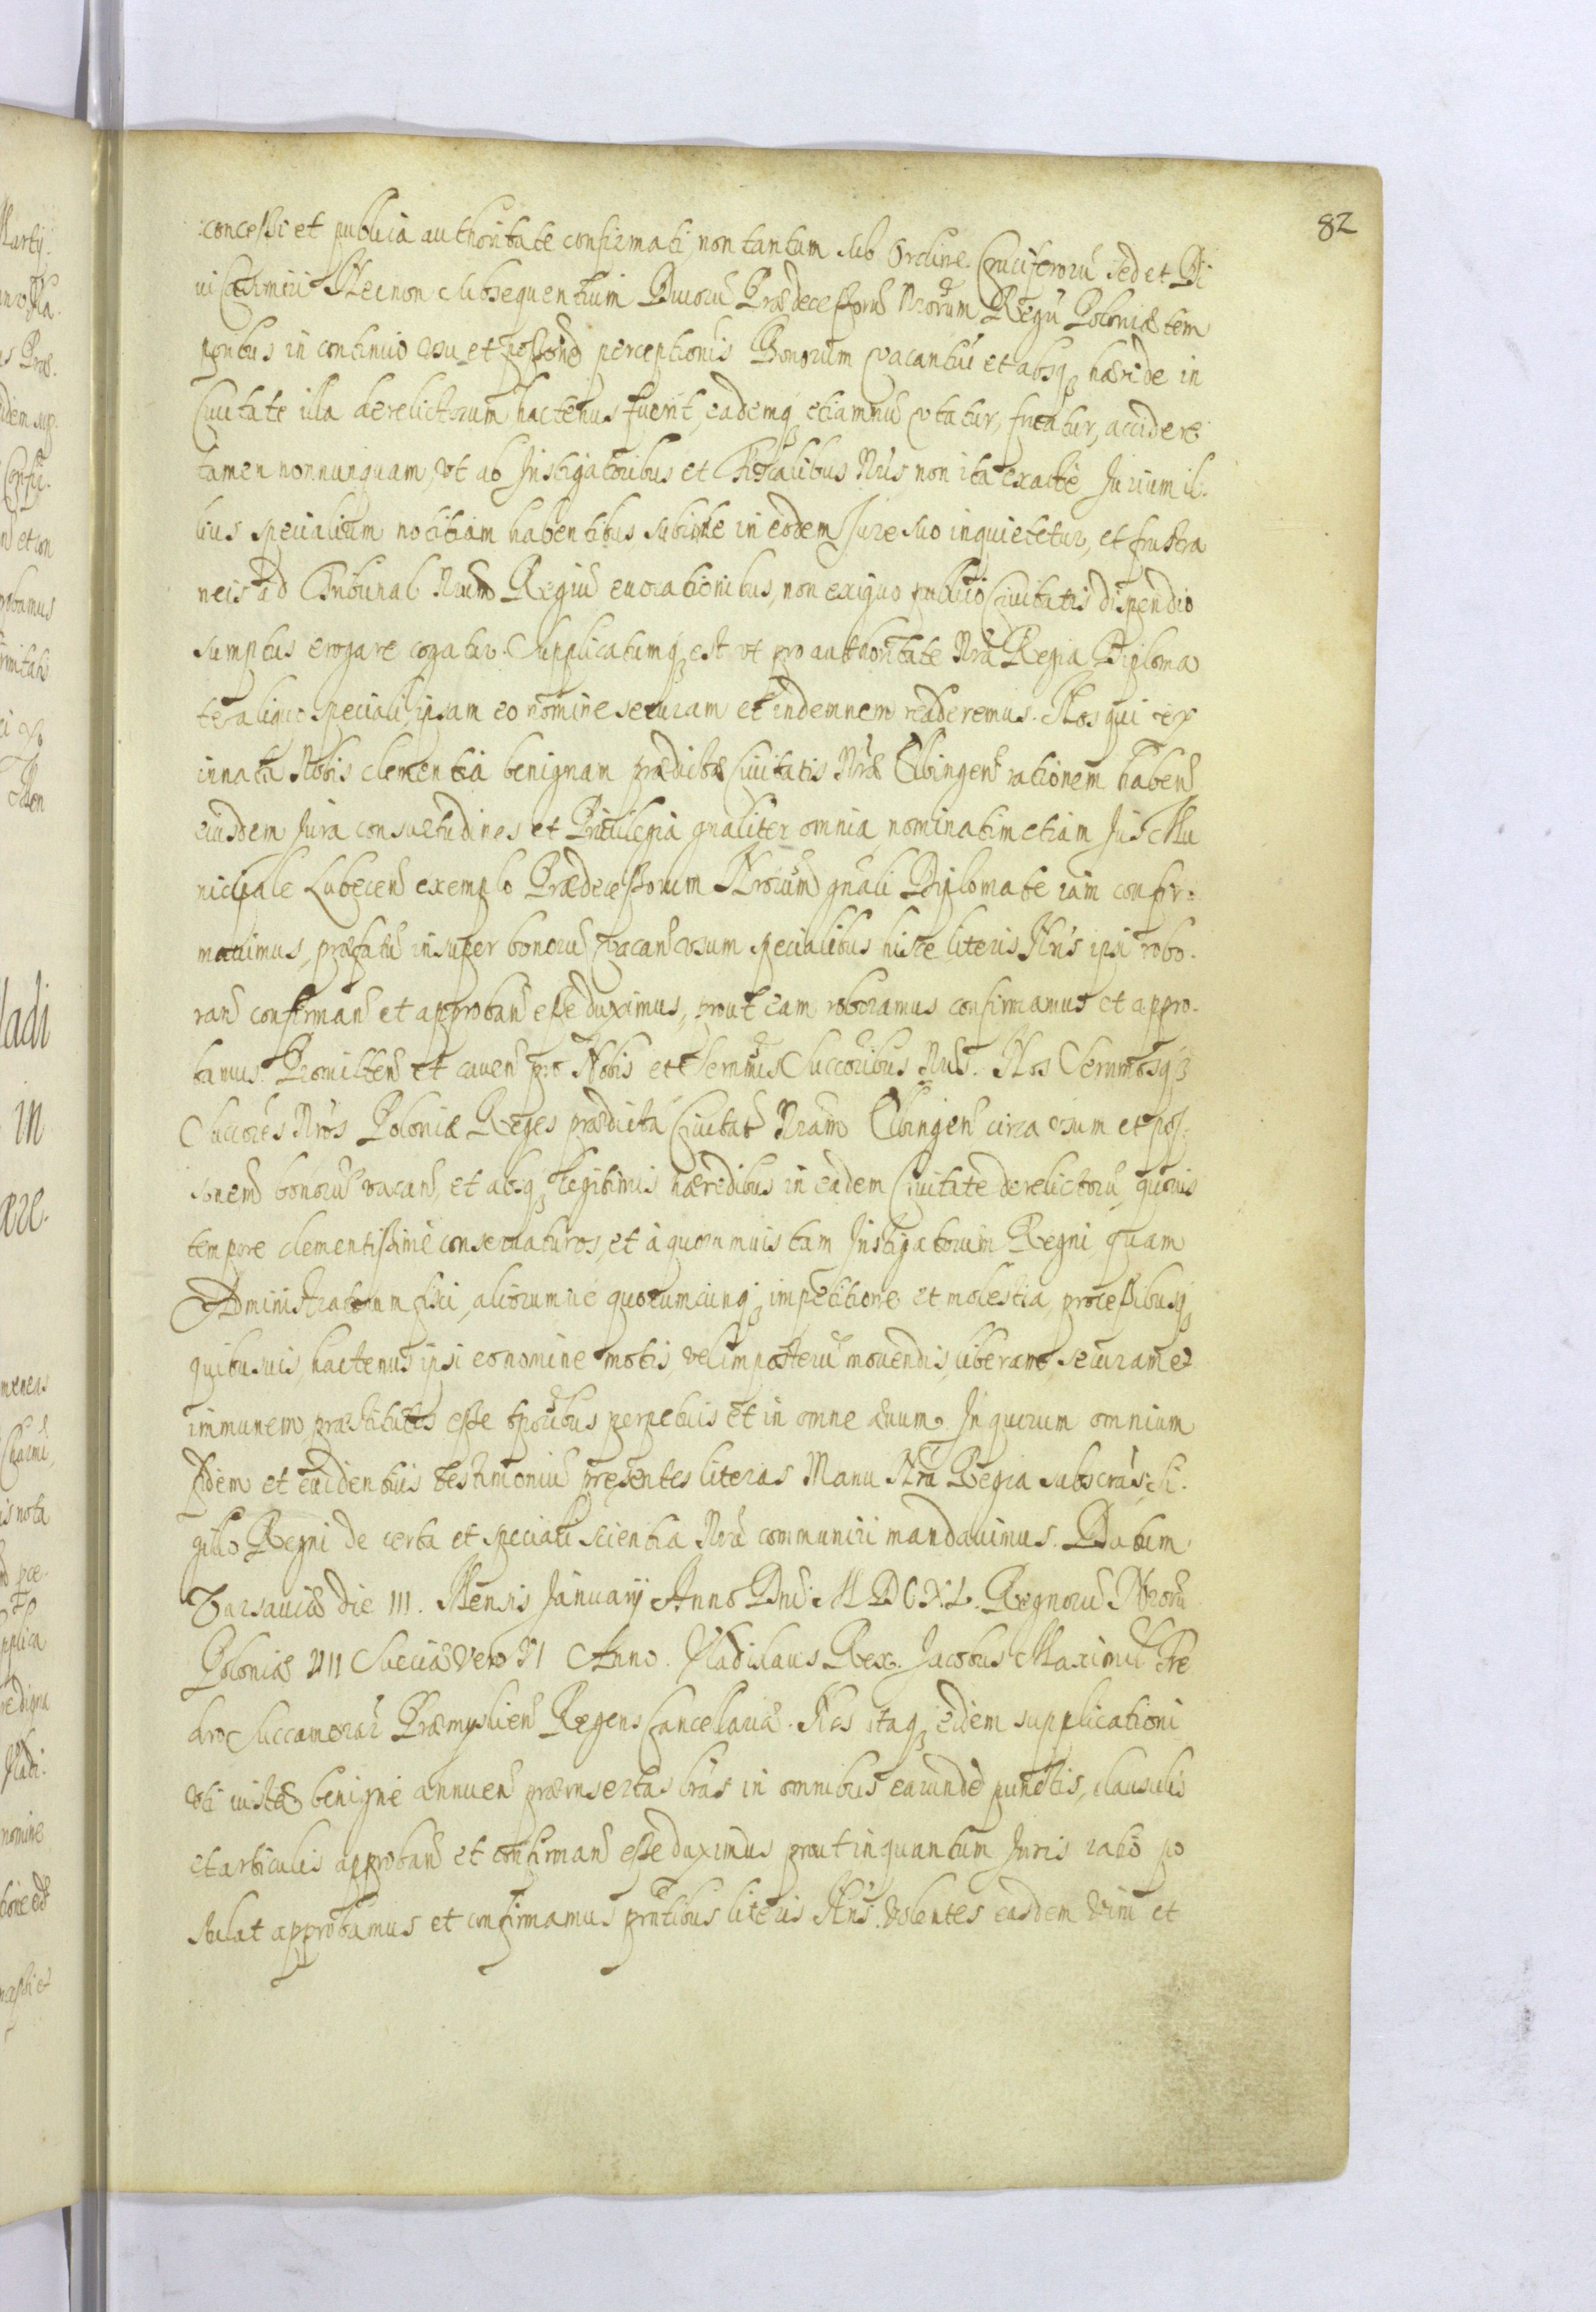 82
concessi et publica authoritate confirmati, non tantum sub Ordine Cruciferorū sed et Di
ui Casimiri Necnon subsequentium Diuorū Prædecessorū Nrorum Regū Poloniæ tem
poribus in continuo usu et possone perceptionis Bonorum vacantiū et absq hæride in
Ciuitate illa derelictorum hactenus fuerit, eademq etiamnū vtatur, fruatur, accidere
tamen nonnunquam, vt ab Instigatoribus et Fiscalibus Nris non ita exacte Jurium il-
lius specialium notitiam habentibus subinde in eodem Jure suo inquietetur, et frustra
neis ad Tribunal Nrum Regiū euocationibus, non exiguo publico Ciuitatis dispendio
sumptus erogare cogatur. Supplicatumq est vt pro authoritate Nrã Regia Diploma
te aliquo speciali, ipsam eo nomine securam et indemnem redderemus. Nos qui ex
innata Nobis clementia benignam prædictæ Ciuitatis Nræ Elbingen rationem haben
eiusdem Jura consuetudines et Priuilegia gnaliter omnia, nominatim etiam Jus Mu
nicipale Lubecen exemplo Prædecessorum Nrorum gnali Diplomate iam confir-
mauimus, præfatū insuper bonorū vacan vsum specialibus hisce literis Nris ipsi robo-
ran confirman et approban esse duximus, prout eam roboramus confirmamus et appro-
bamus. Promitten et cauen pro Nobis et Sermis Succoribus Nris. Nos Sermosq
Succores Nros Poloniæ Reges prædictā Ciuitat Nram Elbingen circa vsum et pos-
sonem bonorū vacan, et absq legitimis hæredibus in eadem Ciuitate derelictorū, quouis
tempore clementissime conseruaturos, et à quorumuis tam Instigatorum Regni, quam
Administratorum fisci, aliorumue quorumcunq impetitione et molestia, processibusq
quibusuis, hactenus ipsi eo nomine motis, vel imposterū mouendis, liberam, securam et
immunem præstituros esse tporibus perpetuis et in omne æuum. In quorum omnium
fidem et euidentius testimoniū presentes literas Manu Nrã Regia subscras, si-
gillo Regni de certa et speciali scientia Nrã communiri mandauimus. Datum
Varsauiæ die III. Mensis Januarij Anno Dni M D C X L. Regnorū Nrorū
Poloniæ VII Sueciæ vero VI Anno. Vladislaus Rex. Jacobus Maximil Fre
dro Succamorar Præmyslien Regens Cancelariã. Nos itaq eidem supplicationi
vti iustæ benigne annuen præinsertas lras in omnibus earundē punctis, clausulis
et articulis approban et confirman esse duximus prout inquantum Juris ratio po
stulat approbamus et confirmamus pntibus literis Nris. volentes easdem vim et